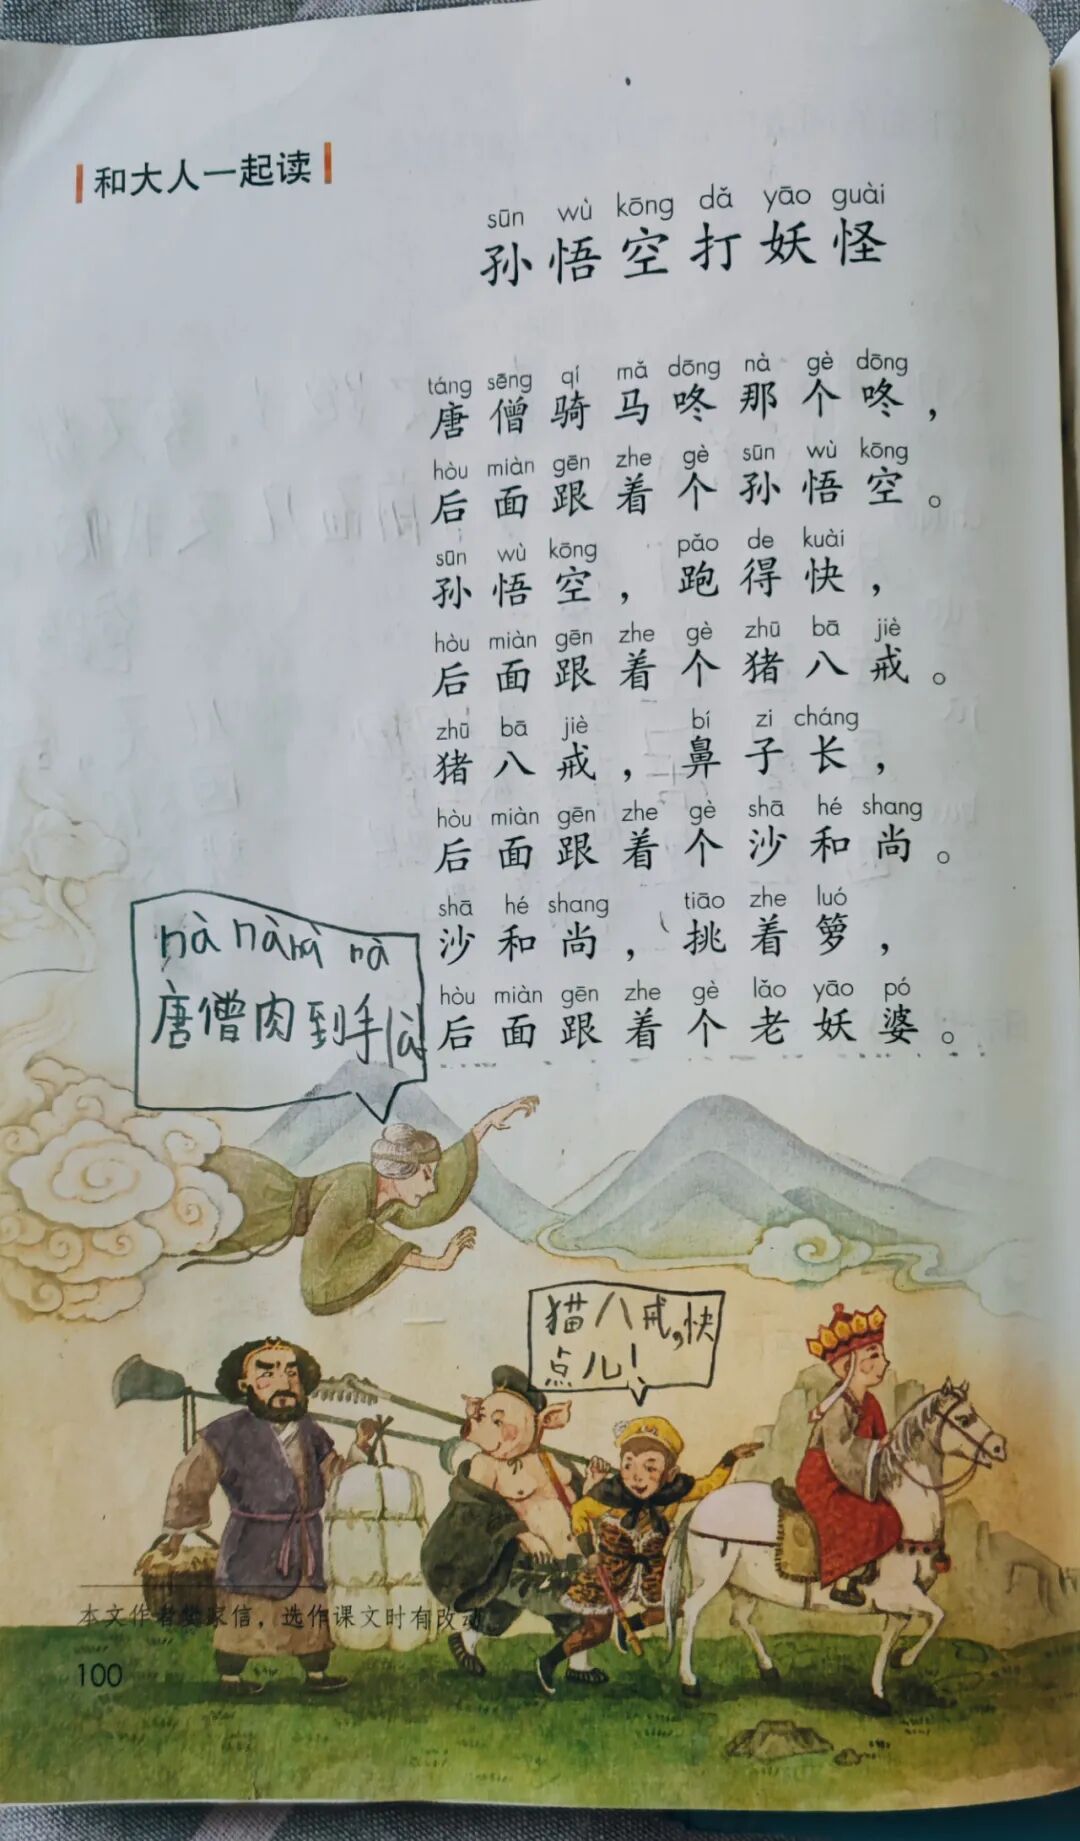 和大人一起读
sūn wù kōng dǎ yāo guài
孙悟空打妖怪
táng sēng qí mǎ dōng nà gè dōng
唐僧骑马咚那个咚，
hòu miàn gēn zhe gè sūn wù kōng
后面跟着个孙悟空。
sūn wù kōng pǎo de kuài
孙悟空，跑得快，
hòu miàn gēn zhe gè zhū bā jiè
后面跟着个猪八戒。
zhū bā jiè bí zi cháng
猪八戒，鼻子长，
hòu miàn gēn zhe gè shā hé shang
后面跟着个沙和尚。
shā hé shang tiāo zhe luó
沙和尚，挑着箩，
hòu miàn gēn zhe gè lǎo yāo pó
后面跟着个老妖婆。
nà nà nà nà
唐僧肉到手là
猫八戒，快
点儿！
本文作者樊家信，选作课文时有改动。
100